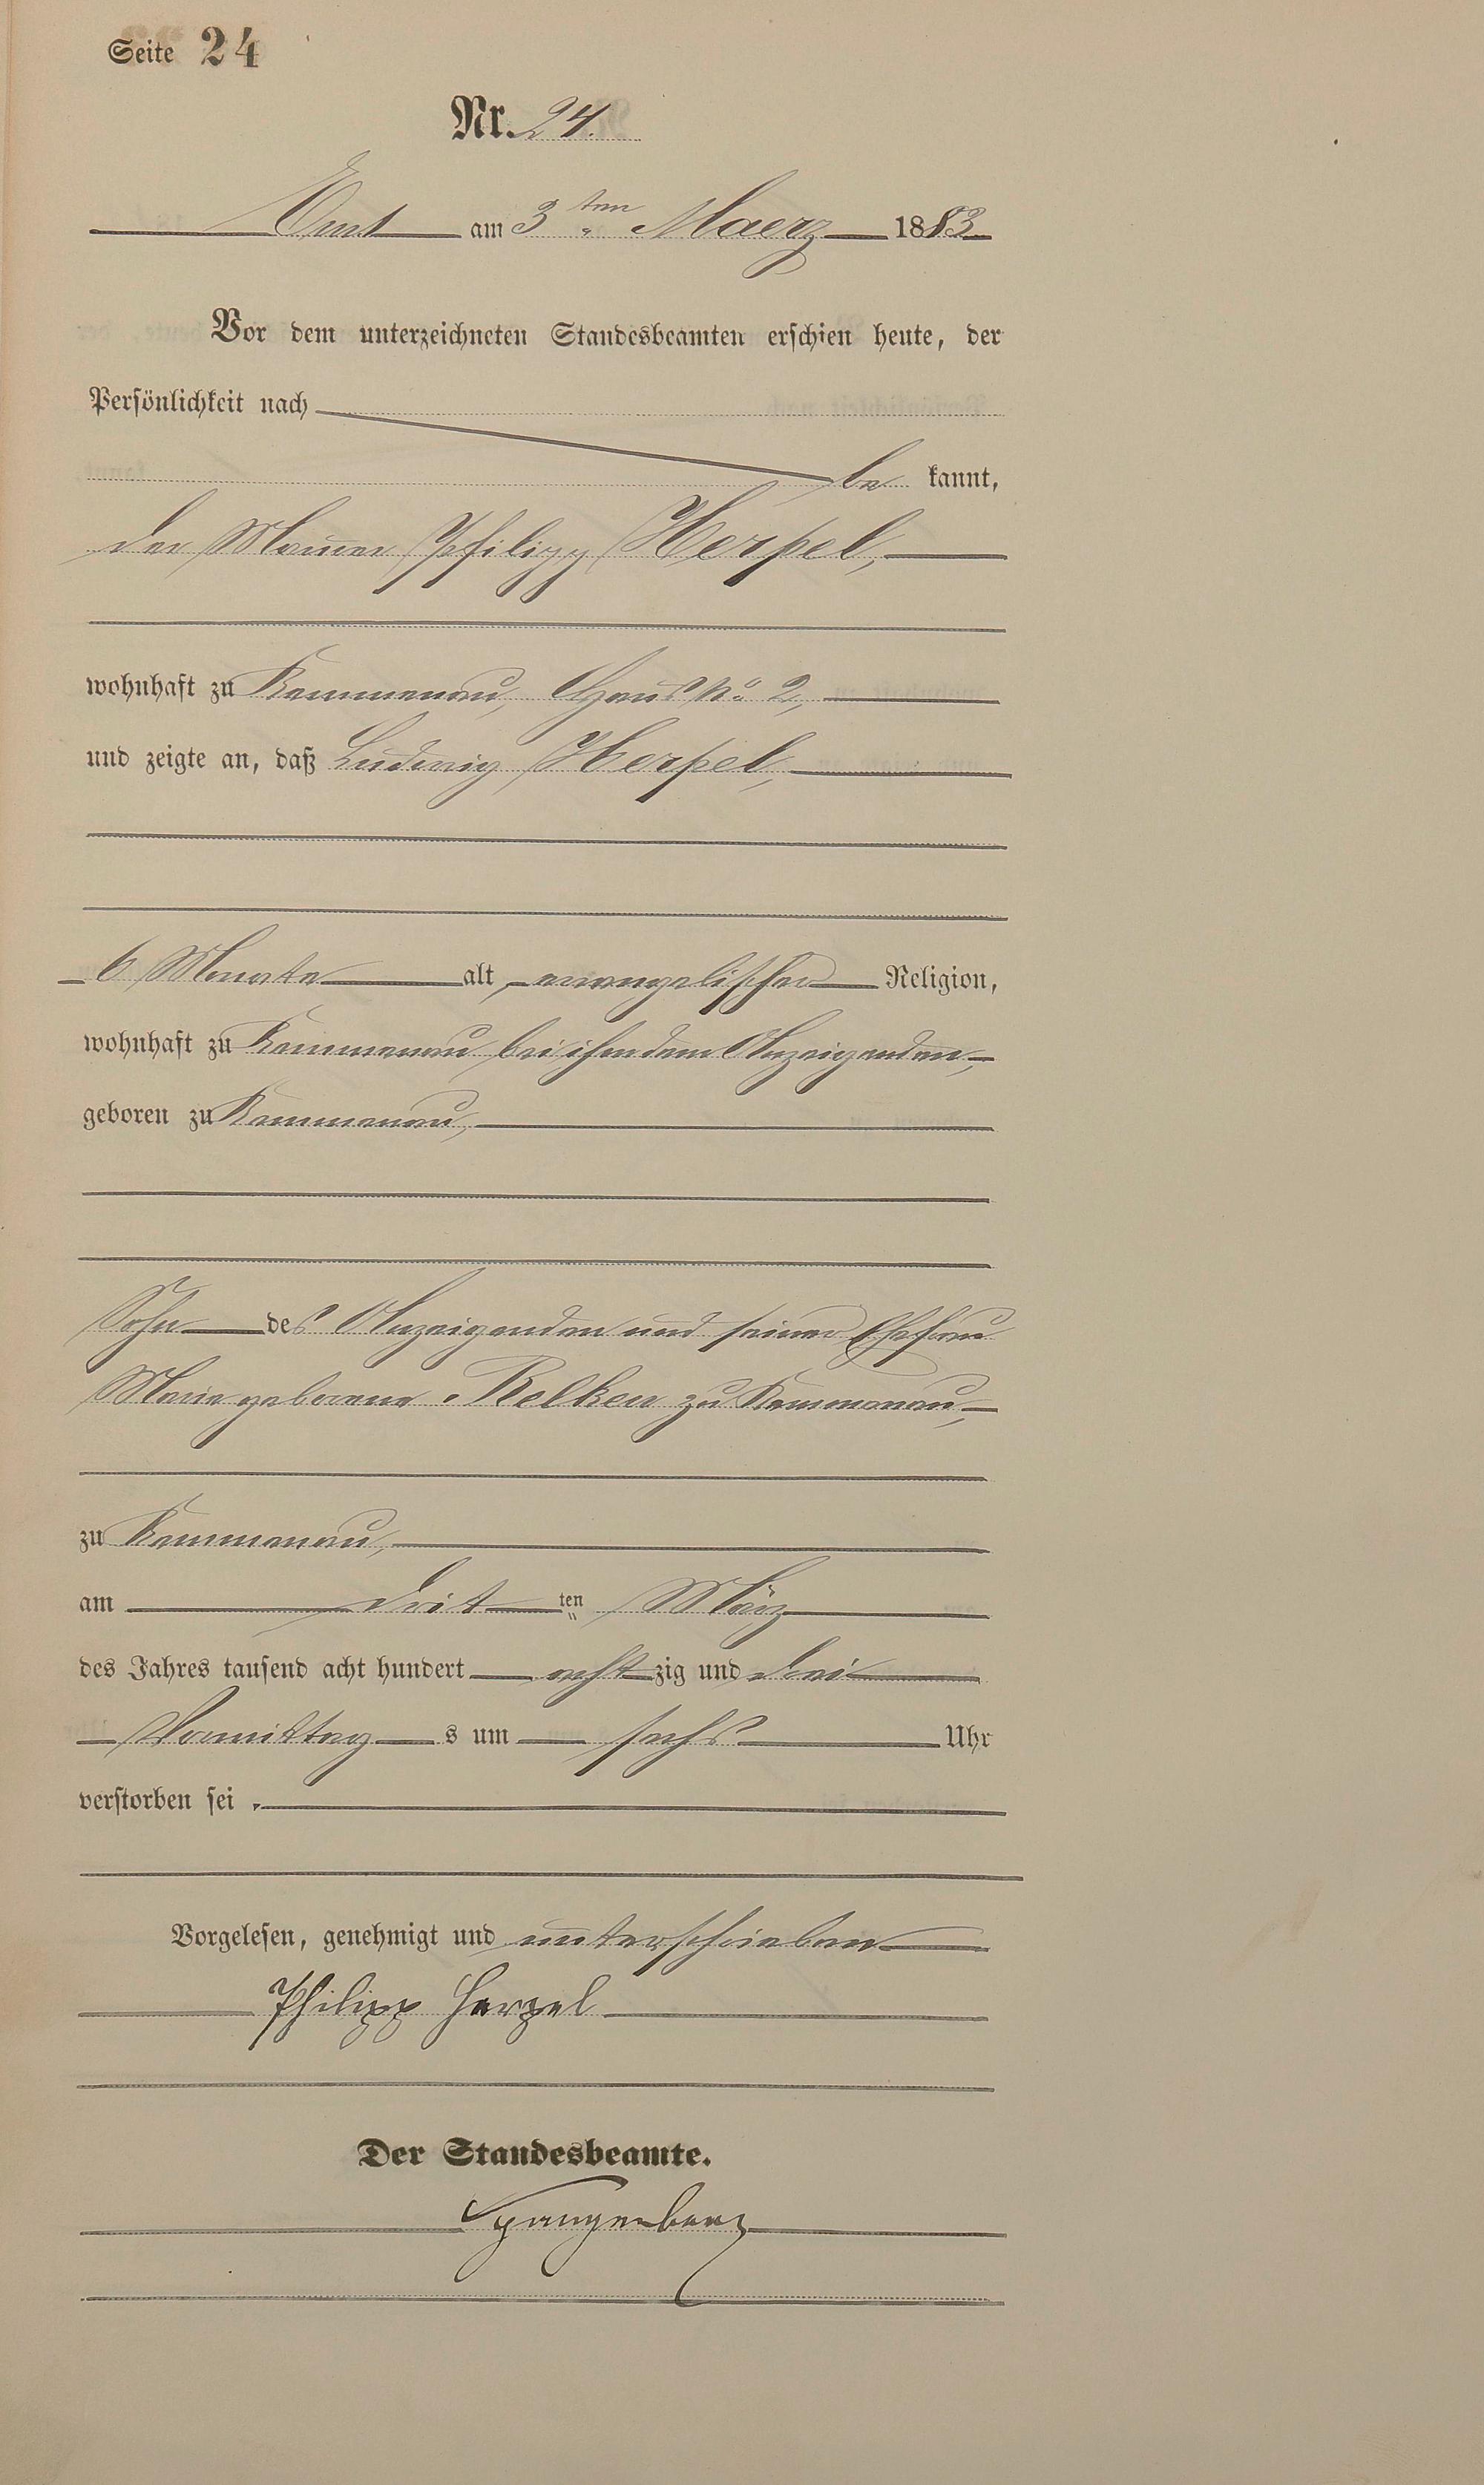 Seite 24
Nr. 24.
Ems am 3ten Maerz 1883
Vor dem unterzeichneten Standesbeamten erschien heute, der
Persönlichkeit nach
be kannt,
der Maurer Philipp Herpel,
wohnhaft zu Kemmenau, Haus No 2,
und zeigte an, daß Ludwig Herpel,
6 Monate alt, evangelischer Religion,
wohnhaft zu Kemmenau bei ihm dem Anzeigenden,
geboren zu Kemmenau,
Sohn des Anzeigenden und seiner Ehefrau
Marie geborene Relken zu Kemmenau,
zu Kemmenau,
am drit ten März
des Jahres tausend acht hundert acht zig und drei
Vormittag s um sechs Uhr
verstorben sei.
Vorgelesen, genehmigt und unterschrieben
Philipp Herpel
Der Standesbeamte.
Spangenberg